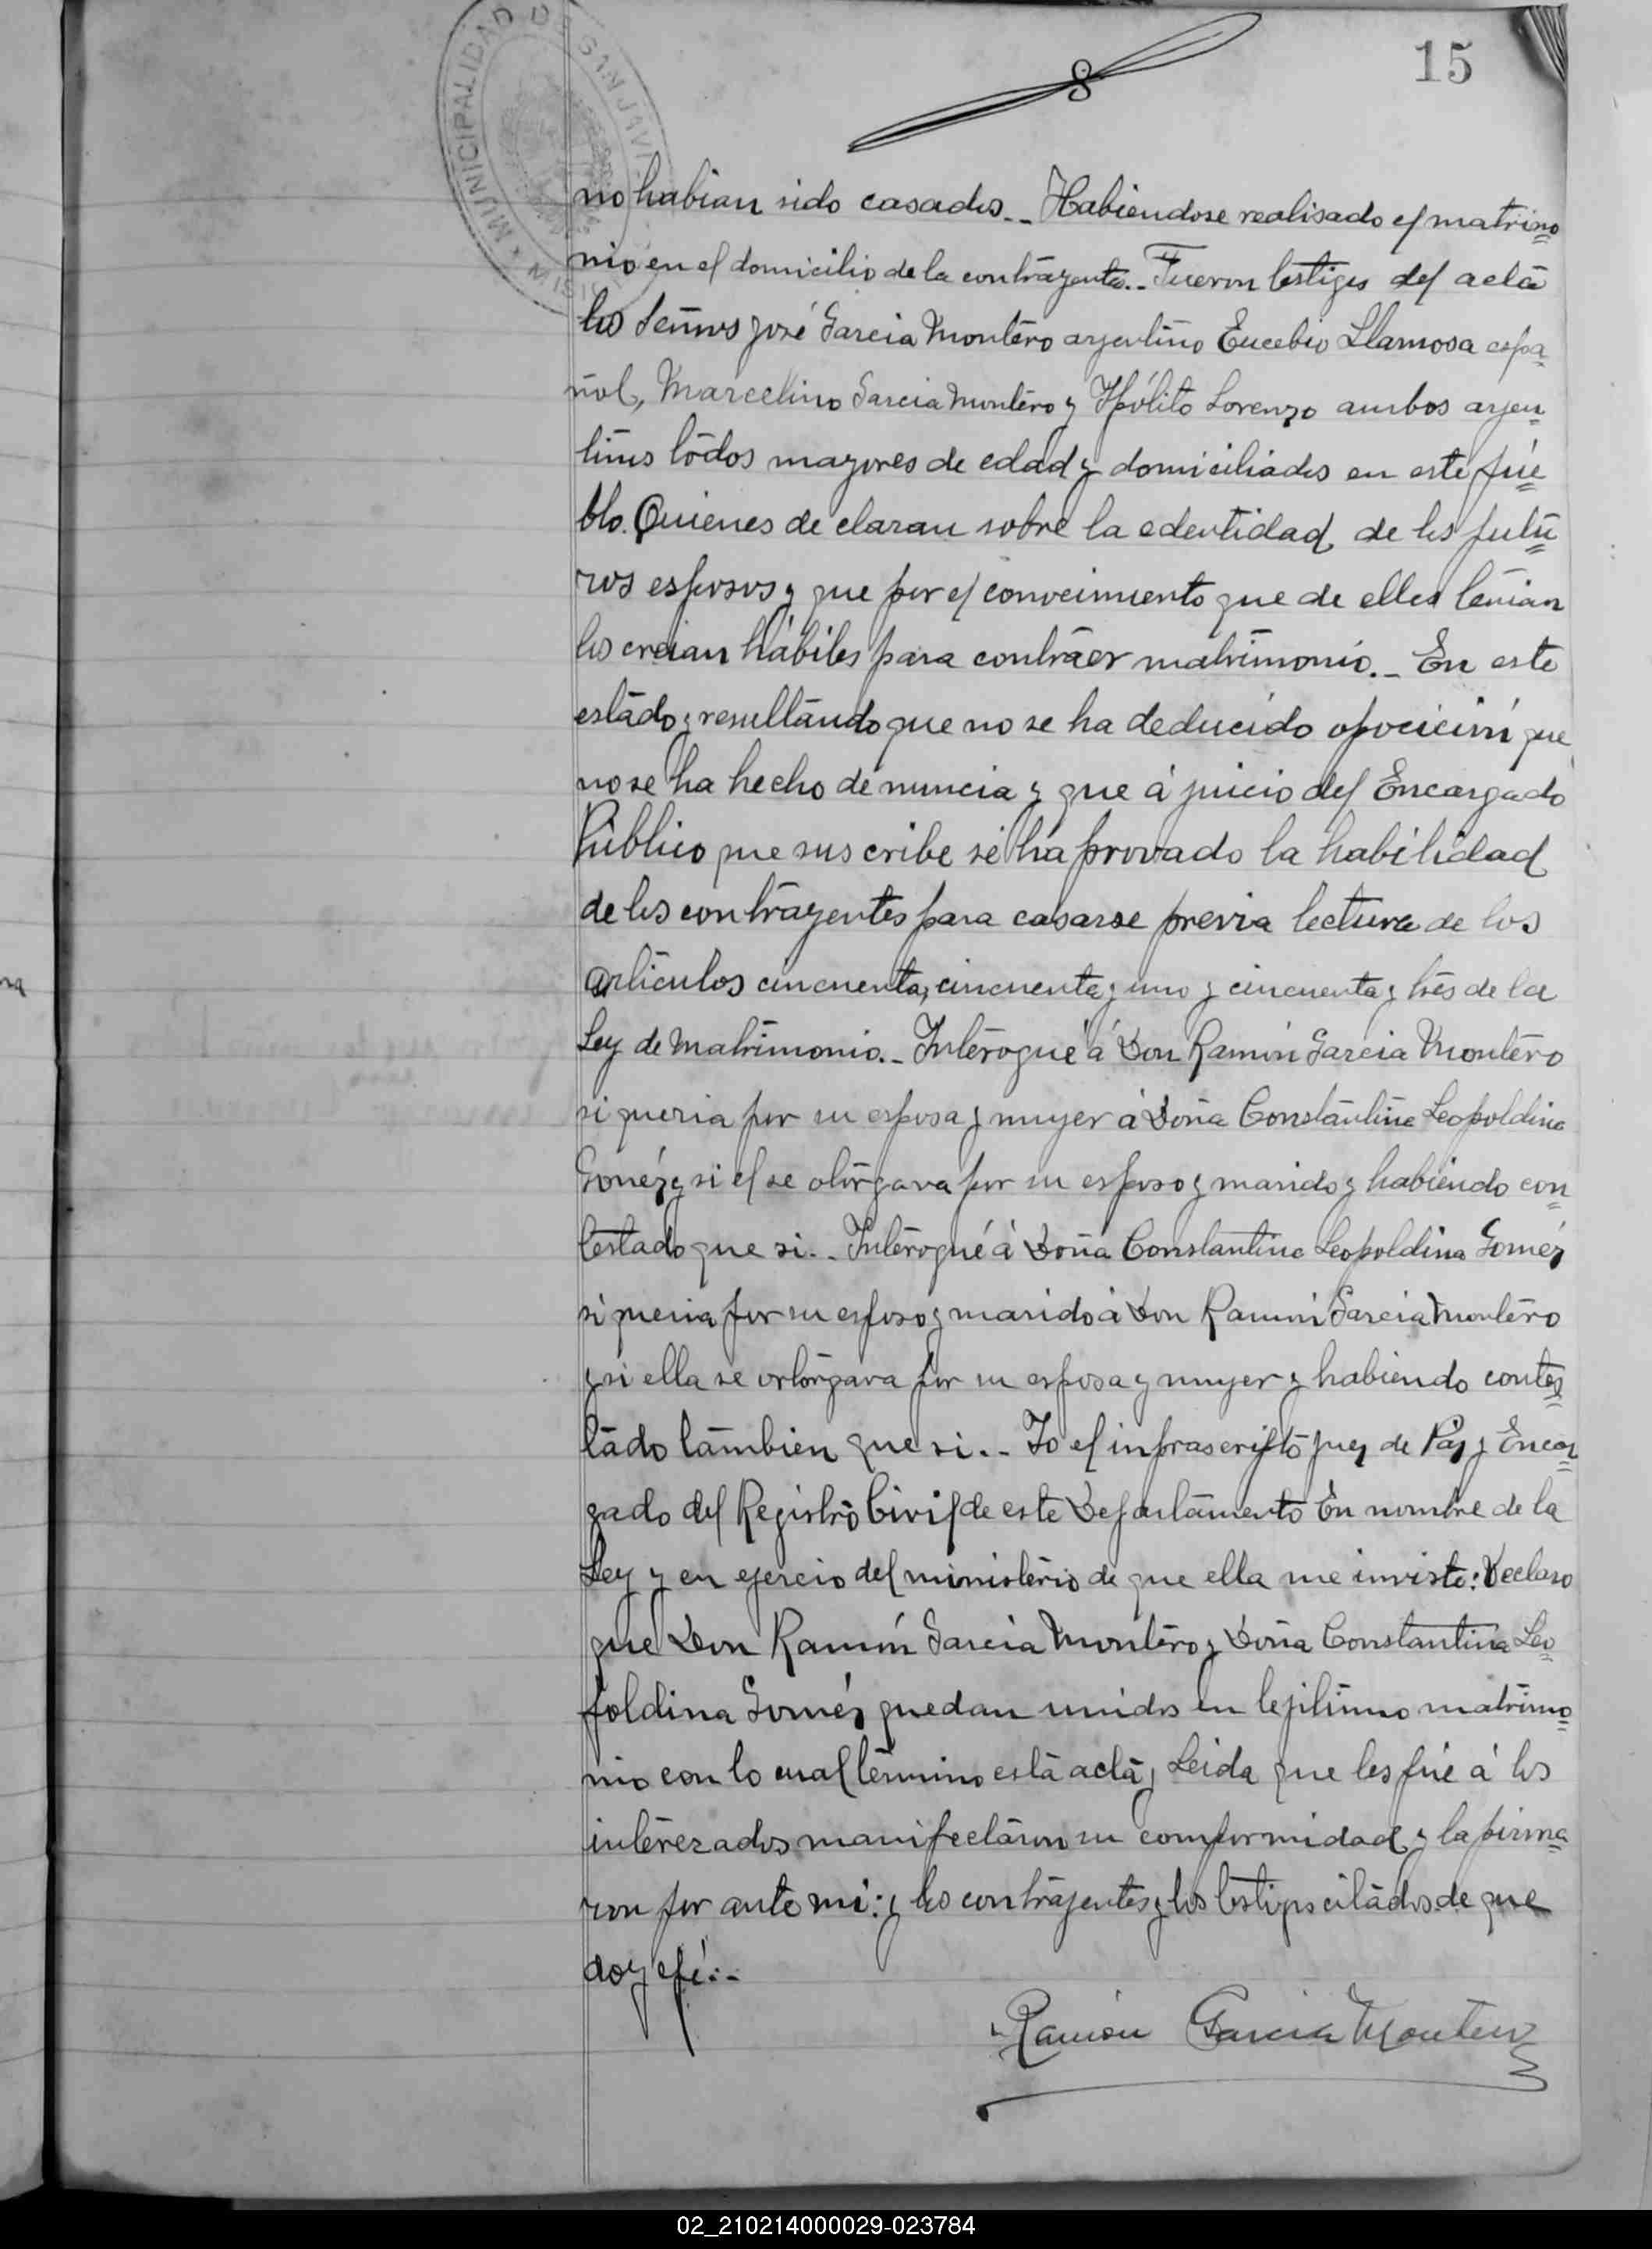 MUNICIPALIDAD DE SAN JAVIER
MISIONES
8
15
no habian sido casados.- Habiendose realisado el matrimo
nio en el domicilio de la contrayente.- Fueron testigos del acta
los Señores José Garcia Montero argentino Eucebio Llamosa espa
ñol, Marcelino Garcia Montero y Ypólito Lorenzo ambos argen
tinos todos mayores de edad y domiciliados en este pue
blo. Quienes de claran sobre la edentidad de los futu
ros esposos y que por el conocimiento que de ellos tenian
los creian hábiles para contraer matrimonio.- En este
estado y resultando que no se ha deducido opocición que
no se ha hecho denuncia y que á juicio del Encargado
Público que suscribe se ha provado la habilidad
de los contrayentes para casarse previa lectura de los
articulos cincuenta, cincuenta y uno y cincuenta y tres de la
Ley de Matrimonio.- Interogué á Don Ramón Garcia Montero
si queria por su esposa y muyer á Doña Constantina Leopoldina
Goméz y si el se otorgava por su esposo y marido y habiendo con
testado que si.- Interogué á Doña Constantina Leopoldina Goméz
si queria por su esposo y marido á Don Ramón Garcia Montero
y si ella se ortorgava por su esposa y muyer y habiendo contes
tado tambien que si.- Yo el infrascripto juez de Paz y Encar
gado del Registro Civil de este Departamento En nombre de la
Ley y en ejercio del ministerio de que ella me inviste: Declaro
que Don Ramón Garcia Montero y Doña Constantina Leo
poldina Goméz quedan unidos en lejitimo matrimo
nio con lo cual termino esta acta, Leida que les fué á los
interezados manifectaron su comformidad y la firma
ron por ante mi: y los contrayentes y los testigos citados de que
doy efé:-
Ramón Garcia Montero
02_210214000029-023784